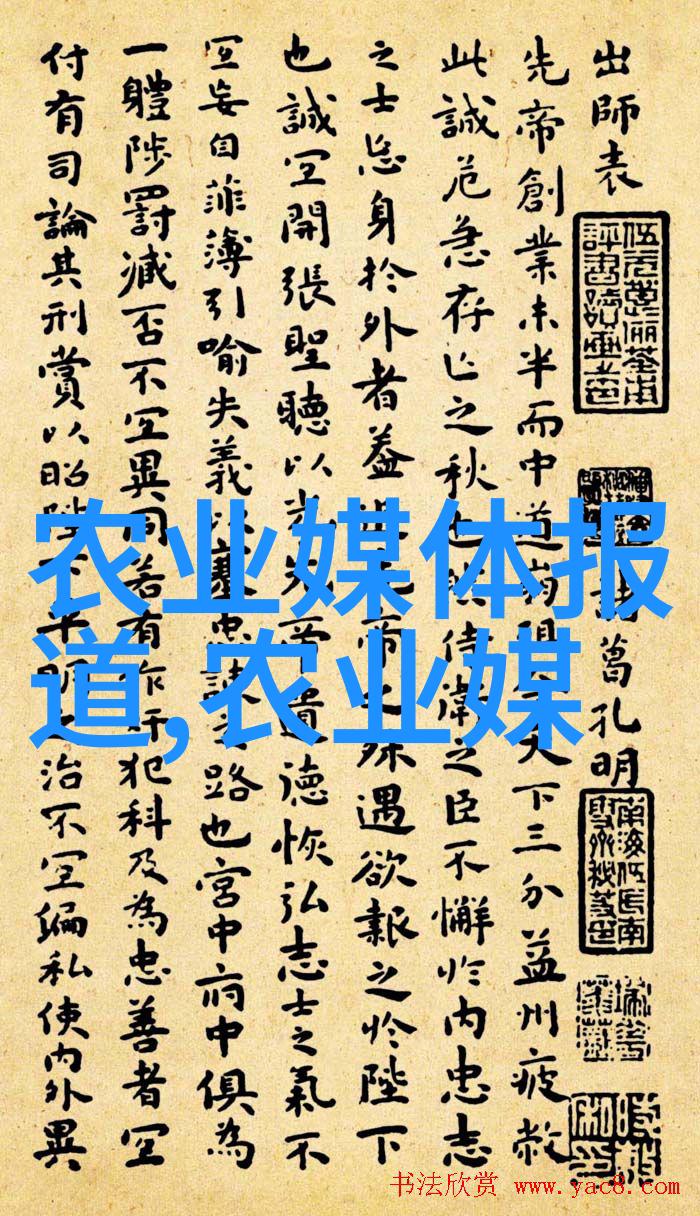 出師表
葛孔明
先帝創業未半而中道崩 天下三分益州疲敝
此誠危急存亡之秋也然侍衛之臣不懈於內忠志
之士忘身於外者蓋追先帝之殊遇欲報之於陛下
也誠宜開張聖聽以光先帝遺德恢弘志士之氣不
宜妄自菲薄引喻失義以塞忠諫之路也宮中府中俱為
一體陟罰臧否不宜異同若有作奸犯科及為忠善者宜
付有司論其刑賞以昭陛下平明之治不宜偏私使內外異
农业媒体报
道,农业媒
书法欣赏 www.yac8.com